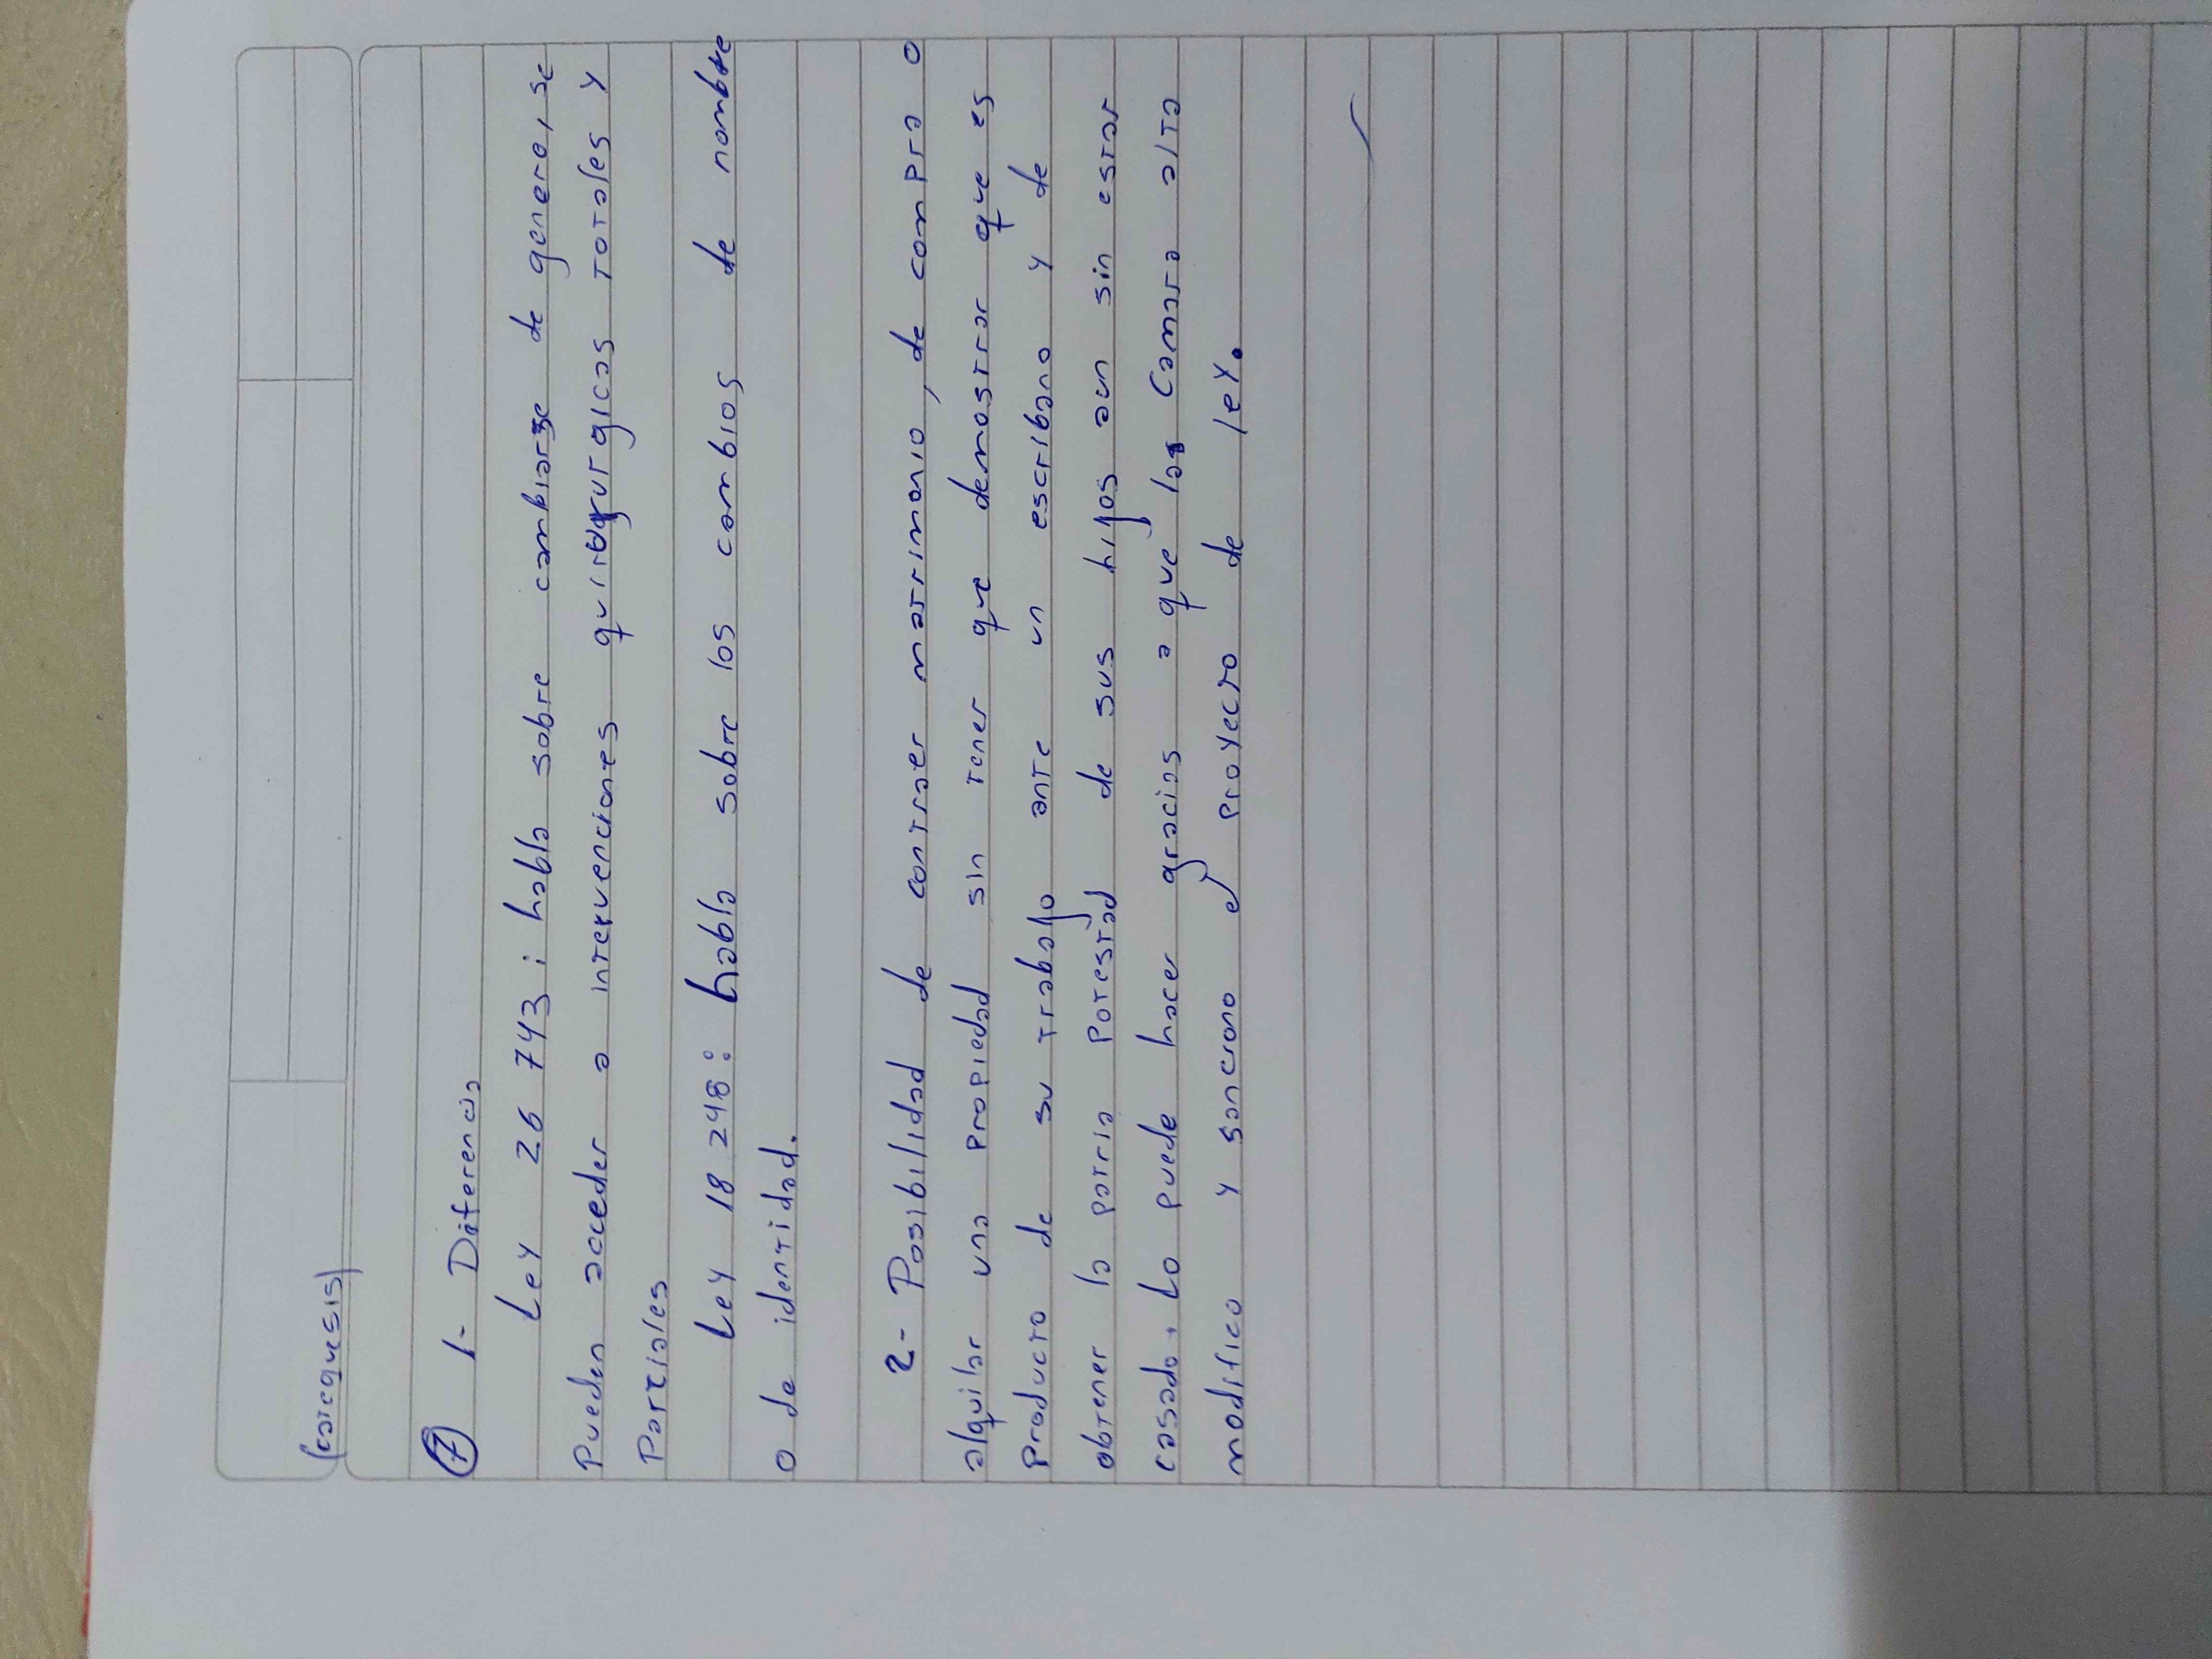 (catequesis)
⑦ 1- Diferencia
Ley 26 743 : habla sobre cambiarse de genero, se
Pueden acceder a intervenciones quirurgicas totales y
Parciales
Ley 18 248: habla sobre los cambios de nombre
o de identidad.
2- Posibilidad de contraer matrimonio, de compra o
alquilar una propiedad sin tener que demostrar que es
Producto de su trabajo ante un escribano y de
obtener la patria Potestad de sus hijos aun sin estar
casado. Lo puede hacer gracias a que la Camara alta
modifico y sanciono el proyecto de ley.